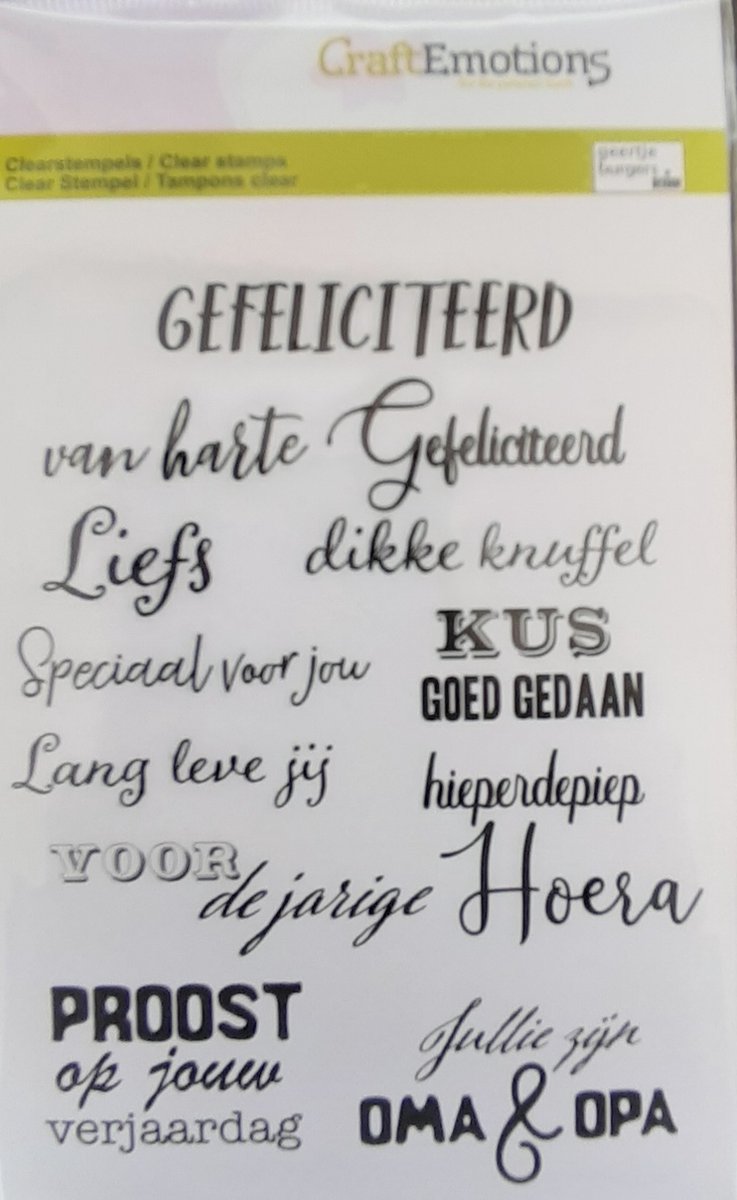 CraftEmotions
Clearstempels / Clear stamps
Clear Stempel / Tampons clear
geertje
burgers
GEFELICITEERD
van harte Gefeliciteerd
Liefs
dikke knuffel
KUS
Speciaal voor jou
GOED GEDAAN
Lang leve jij
hieperdepiep
VOOR
de jarige
Hoera
PROOST
op jouw
verjaardag
Jullie zijn
OMA & OPA